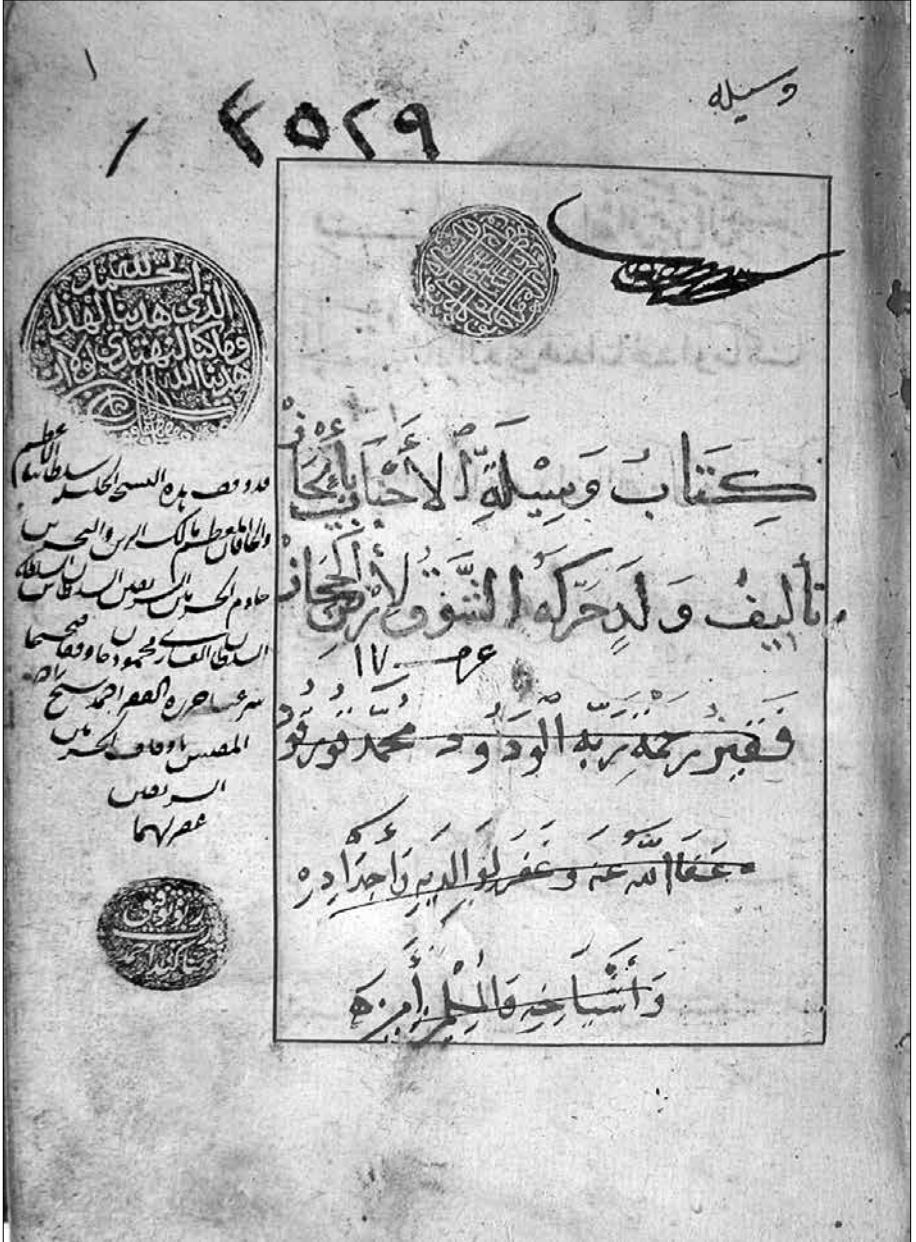 ١
وسيله
٤٥٢٩
١
الحمد لله
الذي هدينا لهذا
وما كنا لنهتدي لولا ان
هدينا الله
كِتَابُ وَسِيْلَةِ الأَحْبَابِ بِإيْجَازْ
تأليفُ وَلَدٍ حَرَّكَهُ الشَّوْقُ لأَرْضِ الحِجَازْ
١٧
فَقِيْر رَحْمَةِ رَبِّهِ الْوَدُود مُحَمَّد
عَفَا اللَّه عَنْهُ وَغَفَرَ لِوَالِدَيهِ وَأَجْدَادِهِ
وَأَشْيَاخِهِ وَالمُسْلِمِيْنَ أَمِيْن
قد وقف هذه النسخة الجليلة سلطاننا الأعظم
والخاقان المعظم مالك البرين والبحرين
خادم الحرمين الشريفين السلطان بن السلطان
السلطان الغازي محمود خان وقفا صحيحا
شرعيا حرره الفقير احمد شيخ زاده
المفتش باوقاف الحرمين
الشريفين
غفر لهما